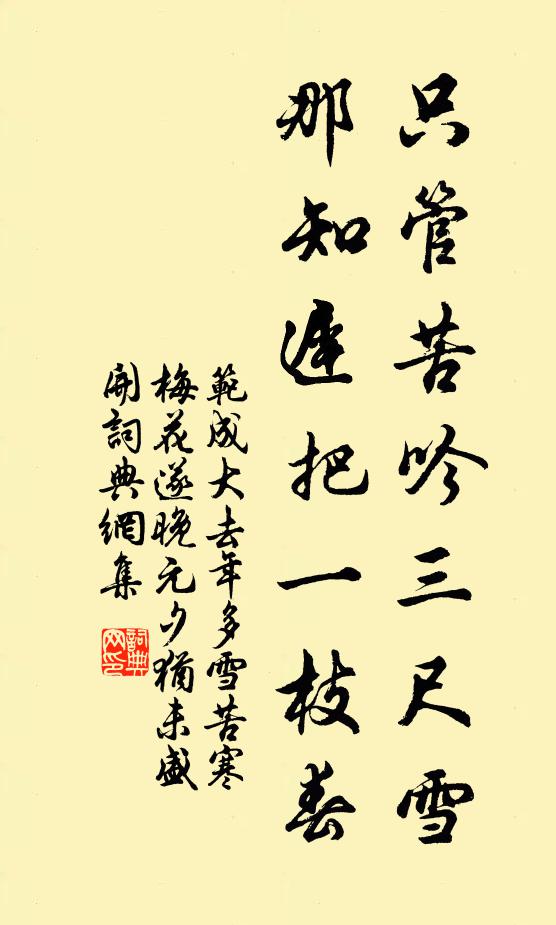 只管苦吟三尺雪
那知遲把一枝春
範成大去年多雪苦寒
梅花遂晚元夕猶未盛
開詞典網集
詞典
网印